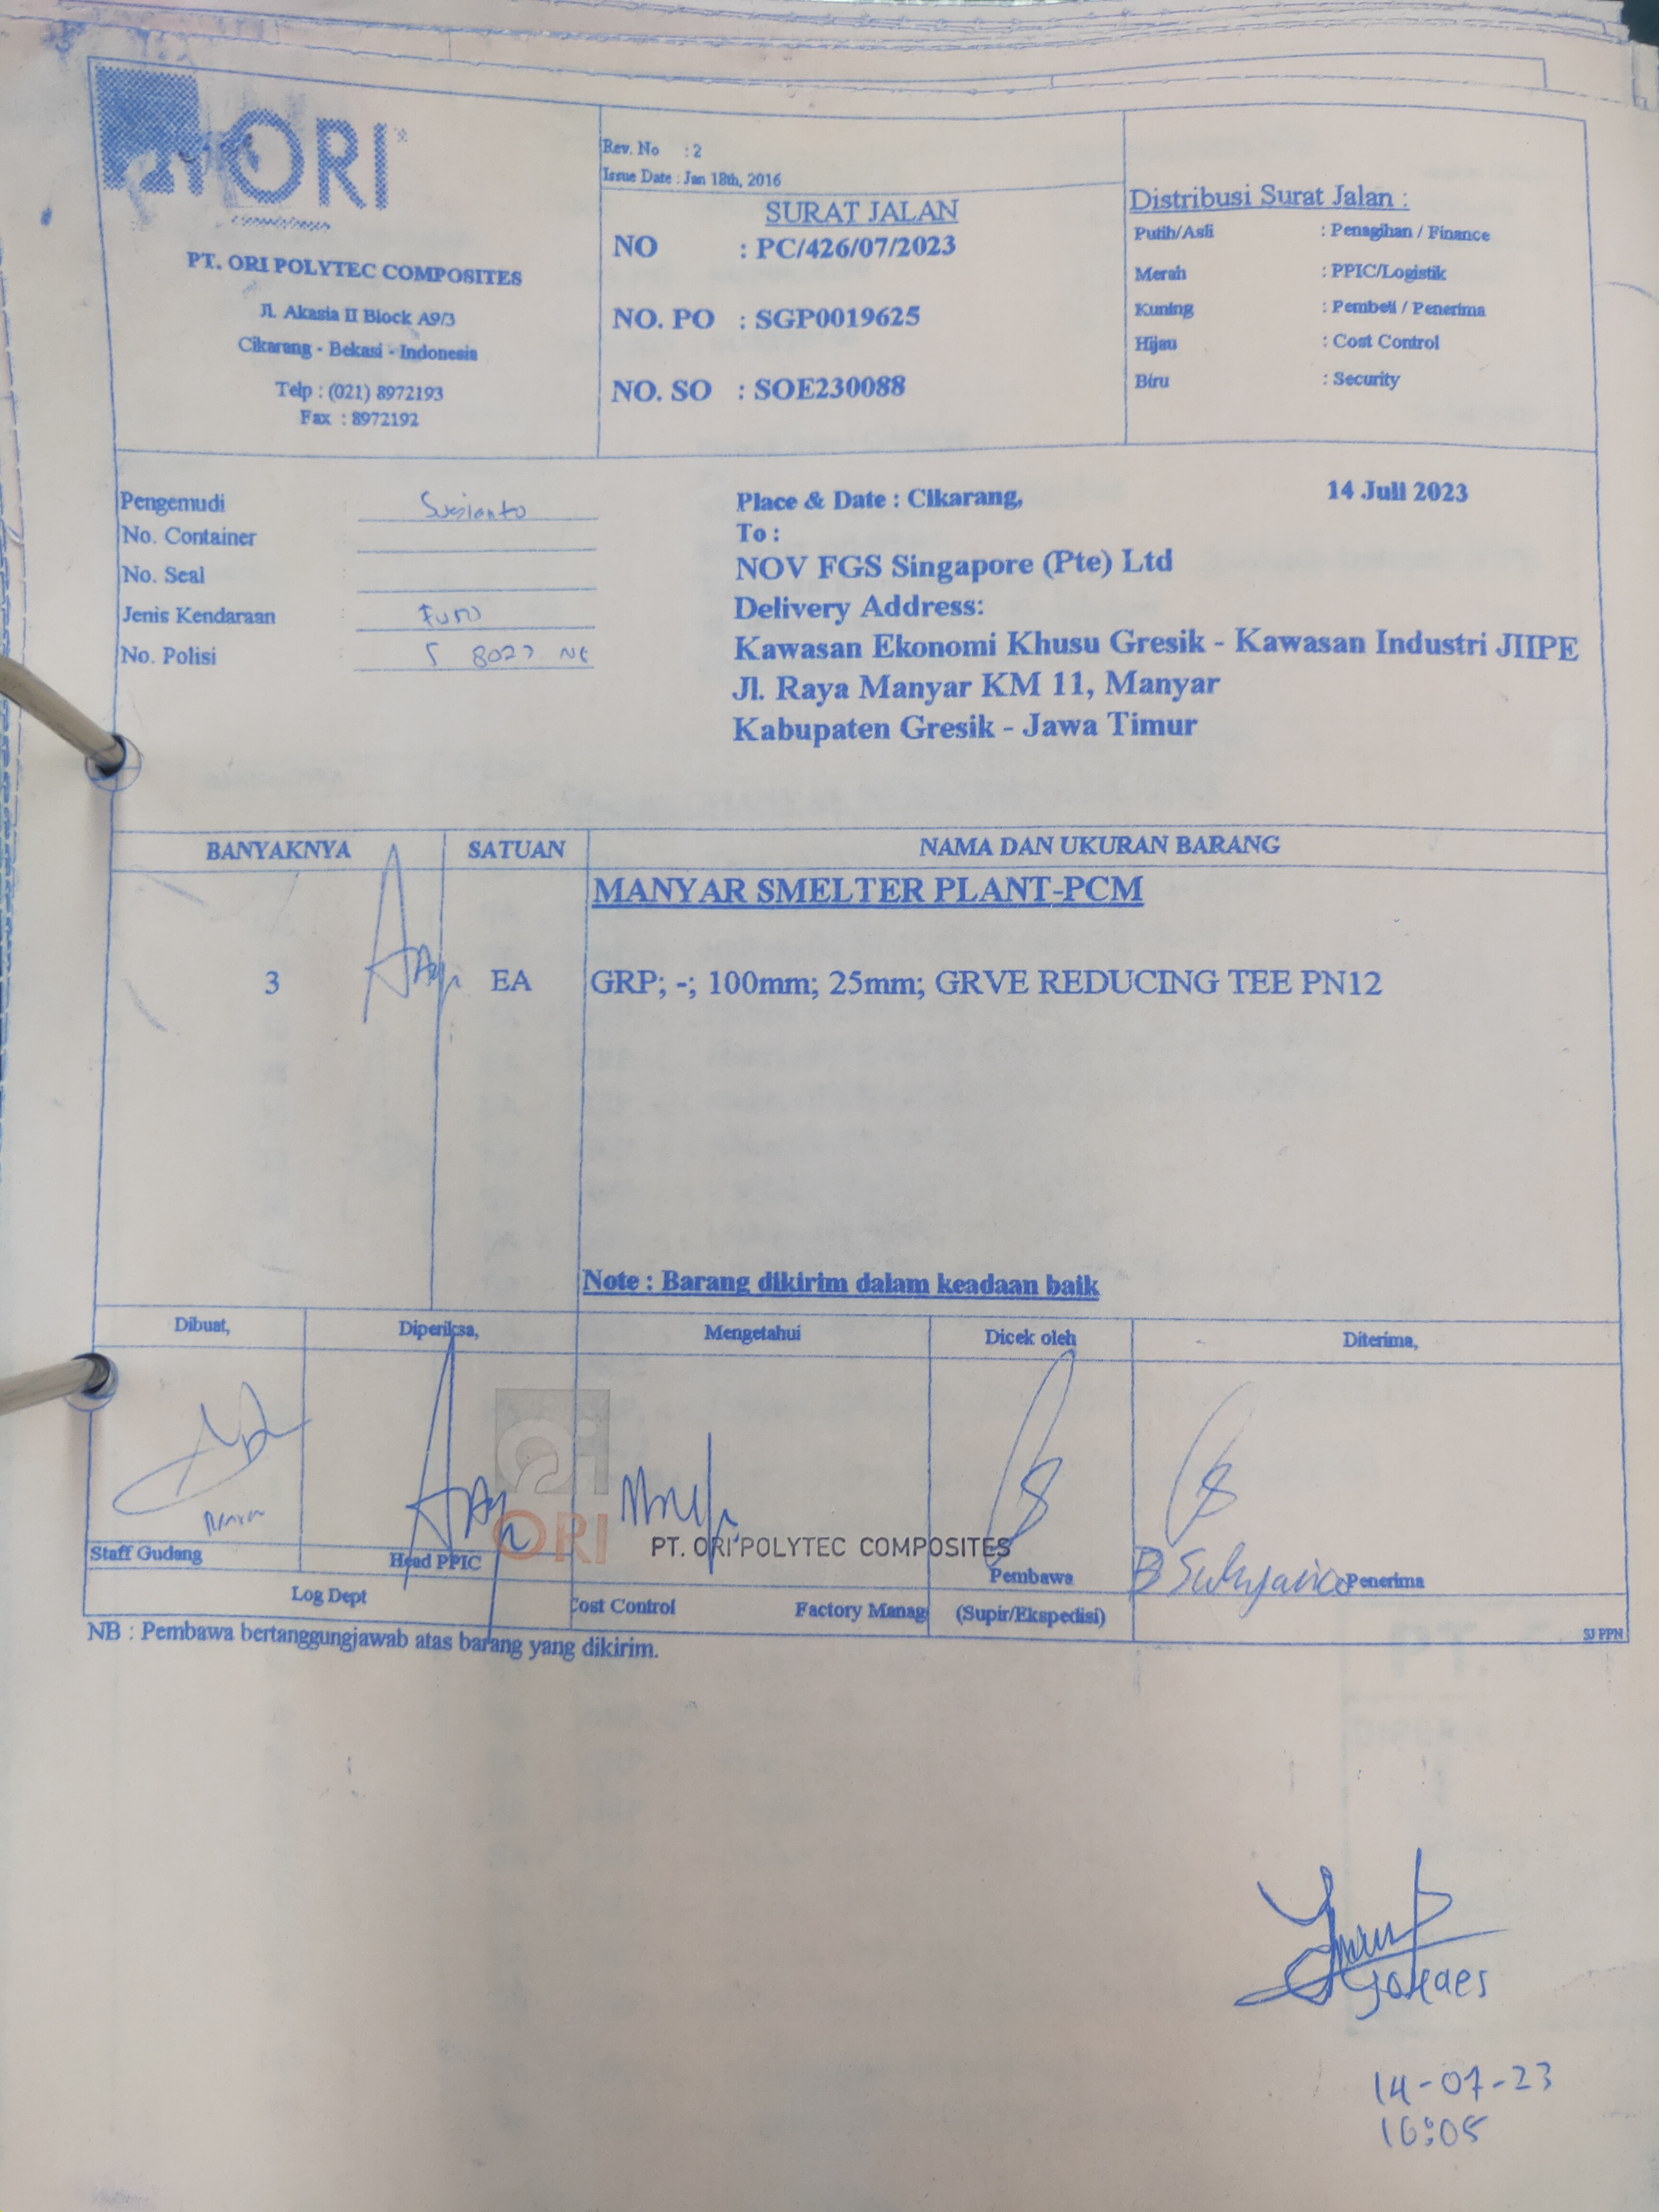 ORI
PT. ORI POLYTEC COMPOSITES
Jl. Akasia II Block A9/3
Cikarang - Bekasi - Indonesia
Telp : (021) 8972193
Fax : 8972192
Rev. No : 2
Issue Date : Jan 18th, 2016
SURAT JALAN
NO : PC/426/07/2023
NO. PO : SGP0019625
NO. SO : SOE230088
Distribusi Surat Jalan :
Putih/Asli : Penagihan / Finance
Merah : PPIC/Logistik
Kuning : Pembeli / Penerima
Hijau : Cost Control
Biru : Security
Pengemudi
No. Container
No. Seal
Jenis Kendaraan : Fuso
No. Polisi :
Place & Date : Cikarang, 14 Juli 2023
To :
NOV FGS Singapore (Pte) Ltd
Delivery Address:
Kawasan Ekonomi Khusu Gresik - Kawasan Industri JIIPE
Jl. Raya Manyar KM 11, Manyar
Kabupaten Gresik - Jawa Timur
BANYAKNYA SATUAN NAMA DAN UKURAN BARANG
MANYAR SMELTER PLANT-PCM
3 EA GRP; -; 100mm; 25mm; GRVE REDUCING TEE PN12
Note : Barang dikirim dalam keadaan baik
Dibuat, Diperiksa, Mengetahui Dicek oleh Diterima,
ORI PT. ORI POLYTEC COMPOSITES
Staff Gudang Head PPIC Pembawa Penerima
Log Dept Cost Control Factory Manag (Supir/Ekspedisi)
SJ PPN
NB : Pembawa bertanggungjawab atas barang yang dikirim.
14-07-23
16:05